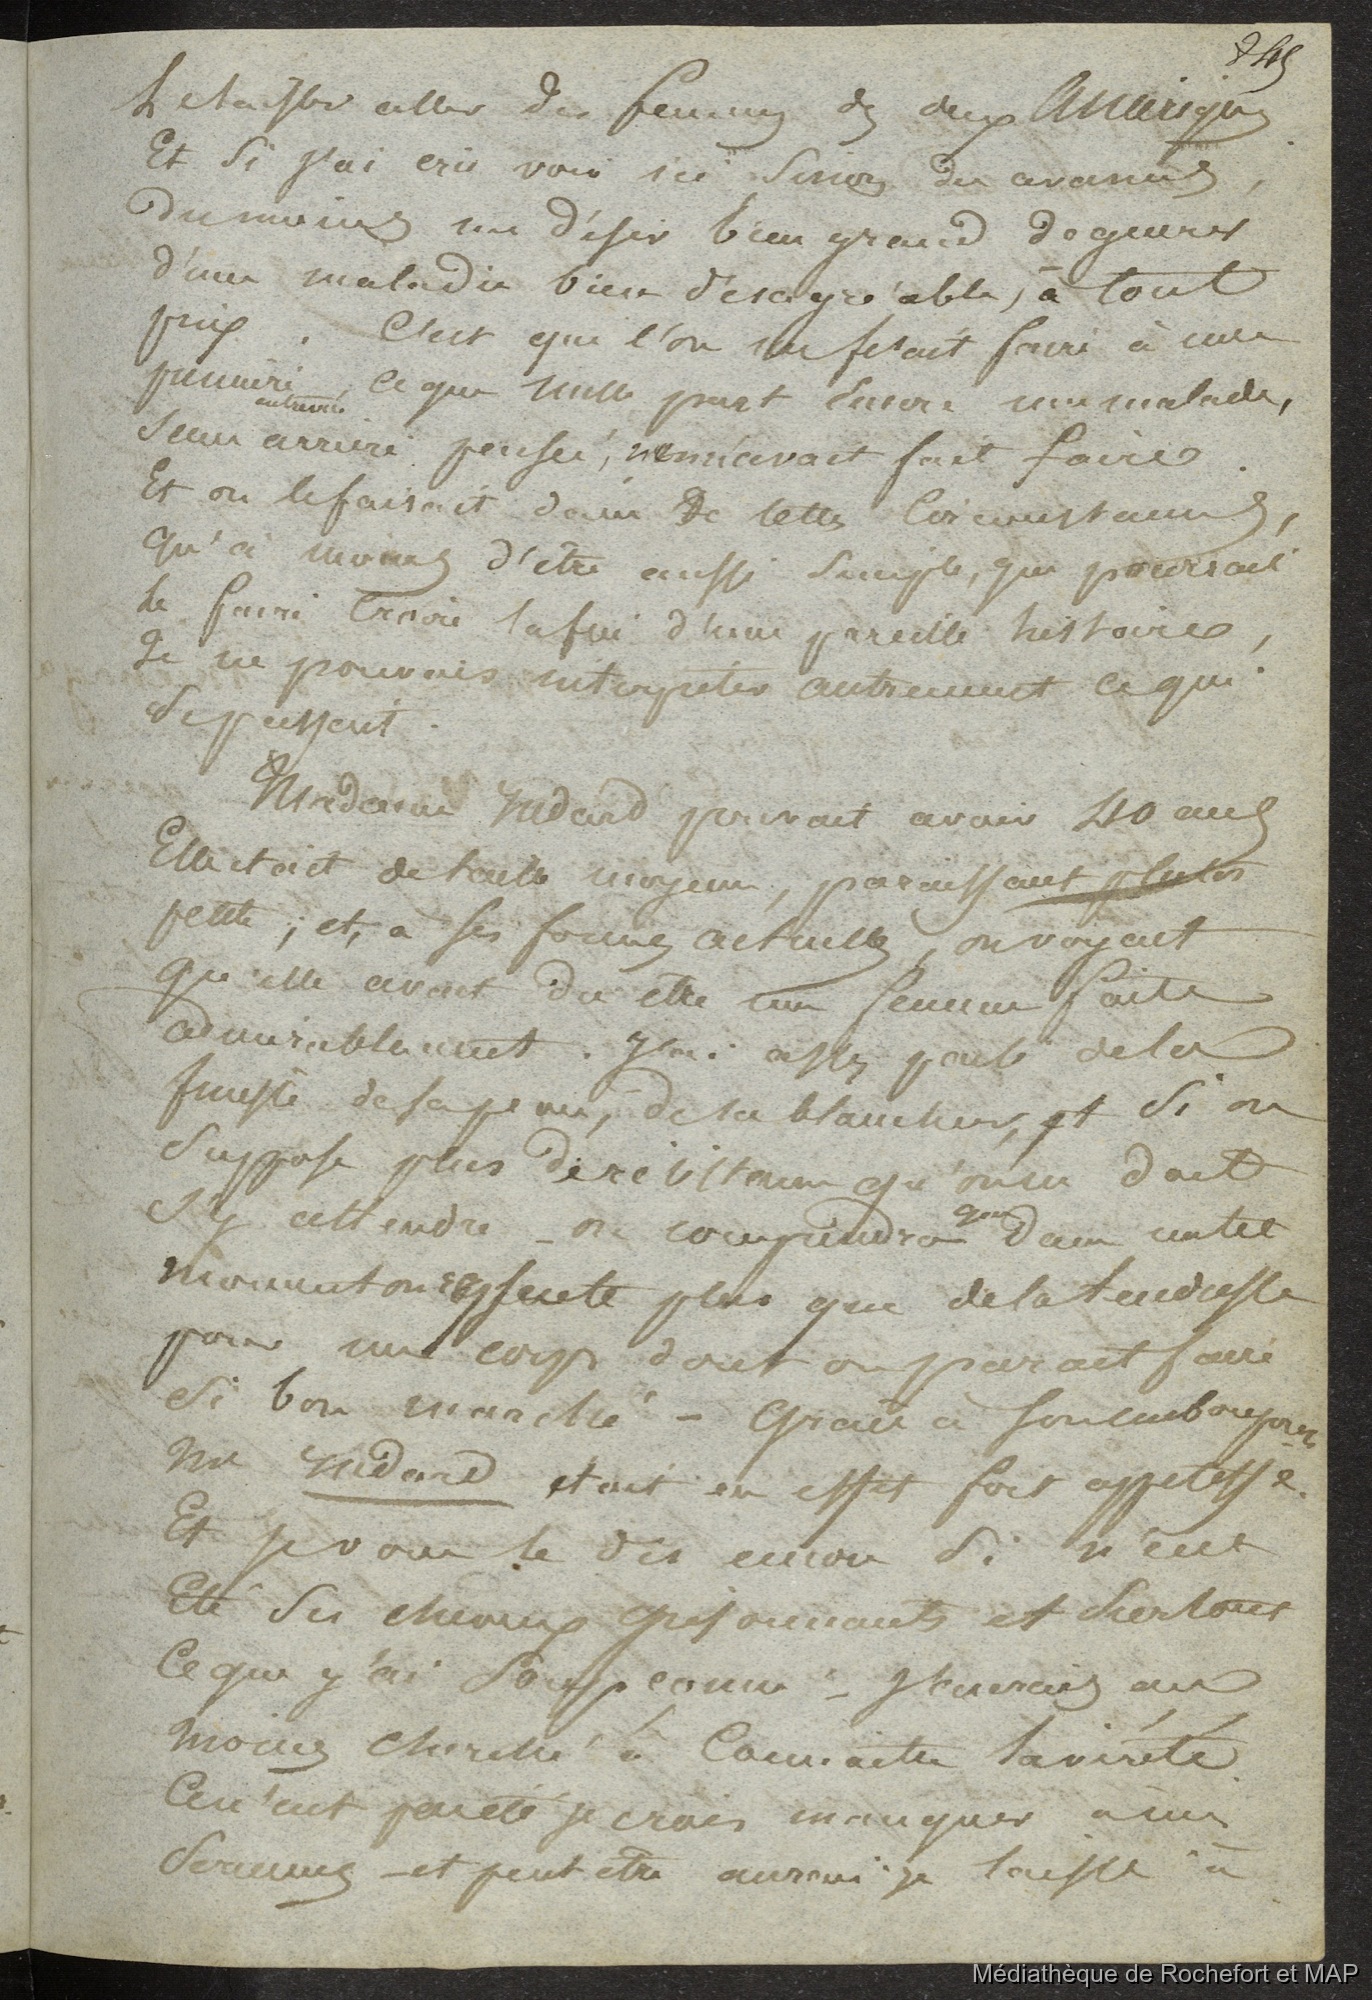 845
Le laisser aller des femmes des deux Amériques
Et si j'ai cru voir ici sinon des avances,
du moins un désir bien grand de guerir
d'une maladie bien désagréable, à tout
prix. C'est que l'on me fesait faire à une
premiere entrevue, ce que nulle part encore une malade,
sans arriere pensée, ne m'avait fait faire.
Et on le faisait dans de telles circonstances,
qu'à moins d'être aussi simple, que pourrait
le faire croire la fin d'une pareille histoire,
Je ne pouvais interpréter autrement ce qui
se passait.
Madame Médard pouvait avoir 40 ans
Elle était de taille moyenne, paraissant plutôt
petite ; et, à ses formes actuelles, on voyait
qu'elle avait du être une femme faite
admirablement. J'ai assez parlé de la
finesse de sa peau, de sa blancheur, et si on
suppose plus de résistance qu'on ne doit
s'y attendre - on comprendra que dans un tel
moment on ressente plus que de la tendresse
pour un corps dont on parait faire
si bon marché - Grace à son embonpoint
Me Médard etait en effet fort appetisse.
Et je vous le dis encore si n'eut
Eté ses cheveux grisonnants et surtout
Ce que j'ai soupçonné - J'aurais au
moins cherché à connaitre la vérité.
Ce n'eut pas été je crois manquer à mes
serments - et peut être aurai-je laissé à
Médiathèque de Rochefort et MAP